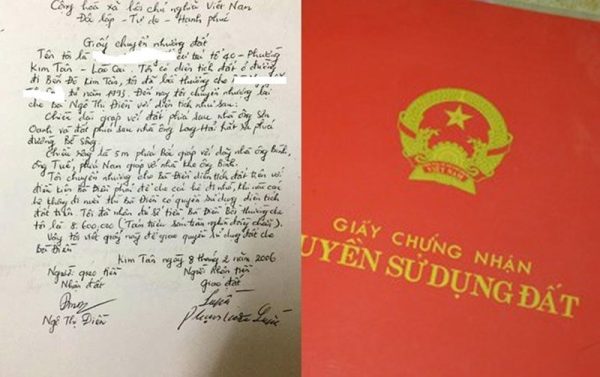 Cộng hòa xã hội chủ nghĩa Việt Nam
Độc lập - Tự do - Hạnh phúc
Giấy chuyển nhượng đất
Tên tôi là cư trú tổ 40 - Phường
Kim Tân - Lào Cai. Tôi có diện tích đất ở đường
đi Bến Đá Kim Tân, tôi đã bồi thường cho
từ năm 1993. Đến nay tôi chuyển nhượng lại
cho Bà Ngô Thị Điền với diện tích như sau:
Chiều dài giáp với đất phía sau nhà ông Sơn
Oanh và đất phía sau nhà ông Long Hải phía
đường Bờ sông.
Chiều rộng là 5m phía Bắc giáp với nhà ông Bình,
ông Tuế, phía Nam giáp với nhà ông Bình.
Tôi chuyển nhượng cho Bà Điền diện tích đất trên với
điều kiện Bà Điền phải để cho các hộ đi nhờ, khi nào các
hộ không đi nữa thì Bà Điền có quyền sử dụng diện tích
đất trên. Tôi đã nhận đủ số tiền Bà Điền bồi thường cho
tôi là 8.600.000 (Tám triệu sáu trăm nghìn đồng chẵn).
Vậy tôi viết giấy này để giao quyền sử dụng đất cho
bà Điền
Kim Tân ngày 8 tháng 2 năm 2006
Người giao tiền Người nhận tiền
Nhận đất Giao đất
Ngô Thị Điền
VIỆT NAM
GIẤY CHỨNG NHẬN
UYỀN SỬ DỤNG ĐẤT